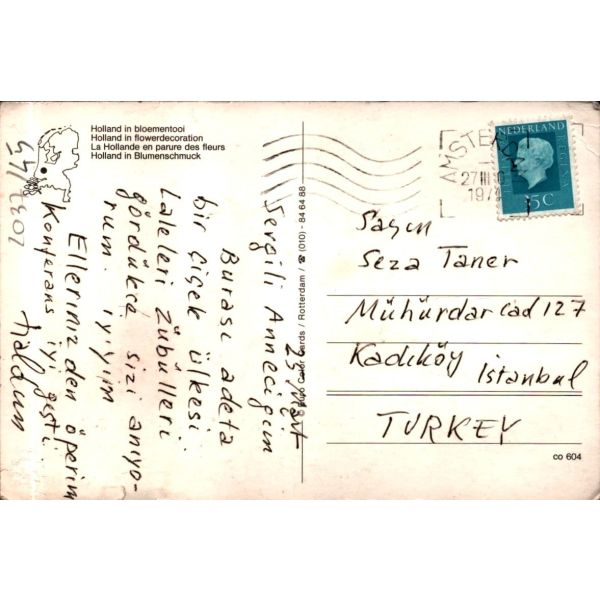 Holland in bloementooi
Holland in flowerdecoration
La Hollande en parure des fleurs
Holland in Blumenschmuck
25 Mart
Sevgili Anneciğim
Burası adeta
bir çiçek ülkesi
Laleleri Zübülleri
gördükçe sizi anıyo-
rum. iyiyim
Ellerinizden öperim
Konferans iyi geçti.
Haldun
Color Cards / Rotterdam / ☎ (010) - 84 64 88
AMSTERDAM
27 III
NEDERLAND
5 C
Sayın
Seza Taner
Mühürdar cad 127
Kadıköy İstanbul
TURKEY
co 604